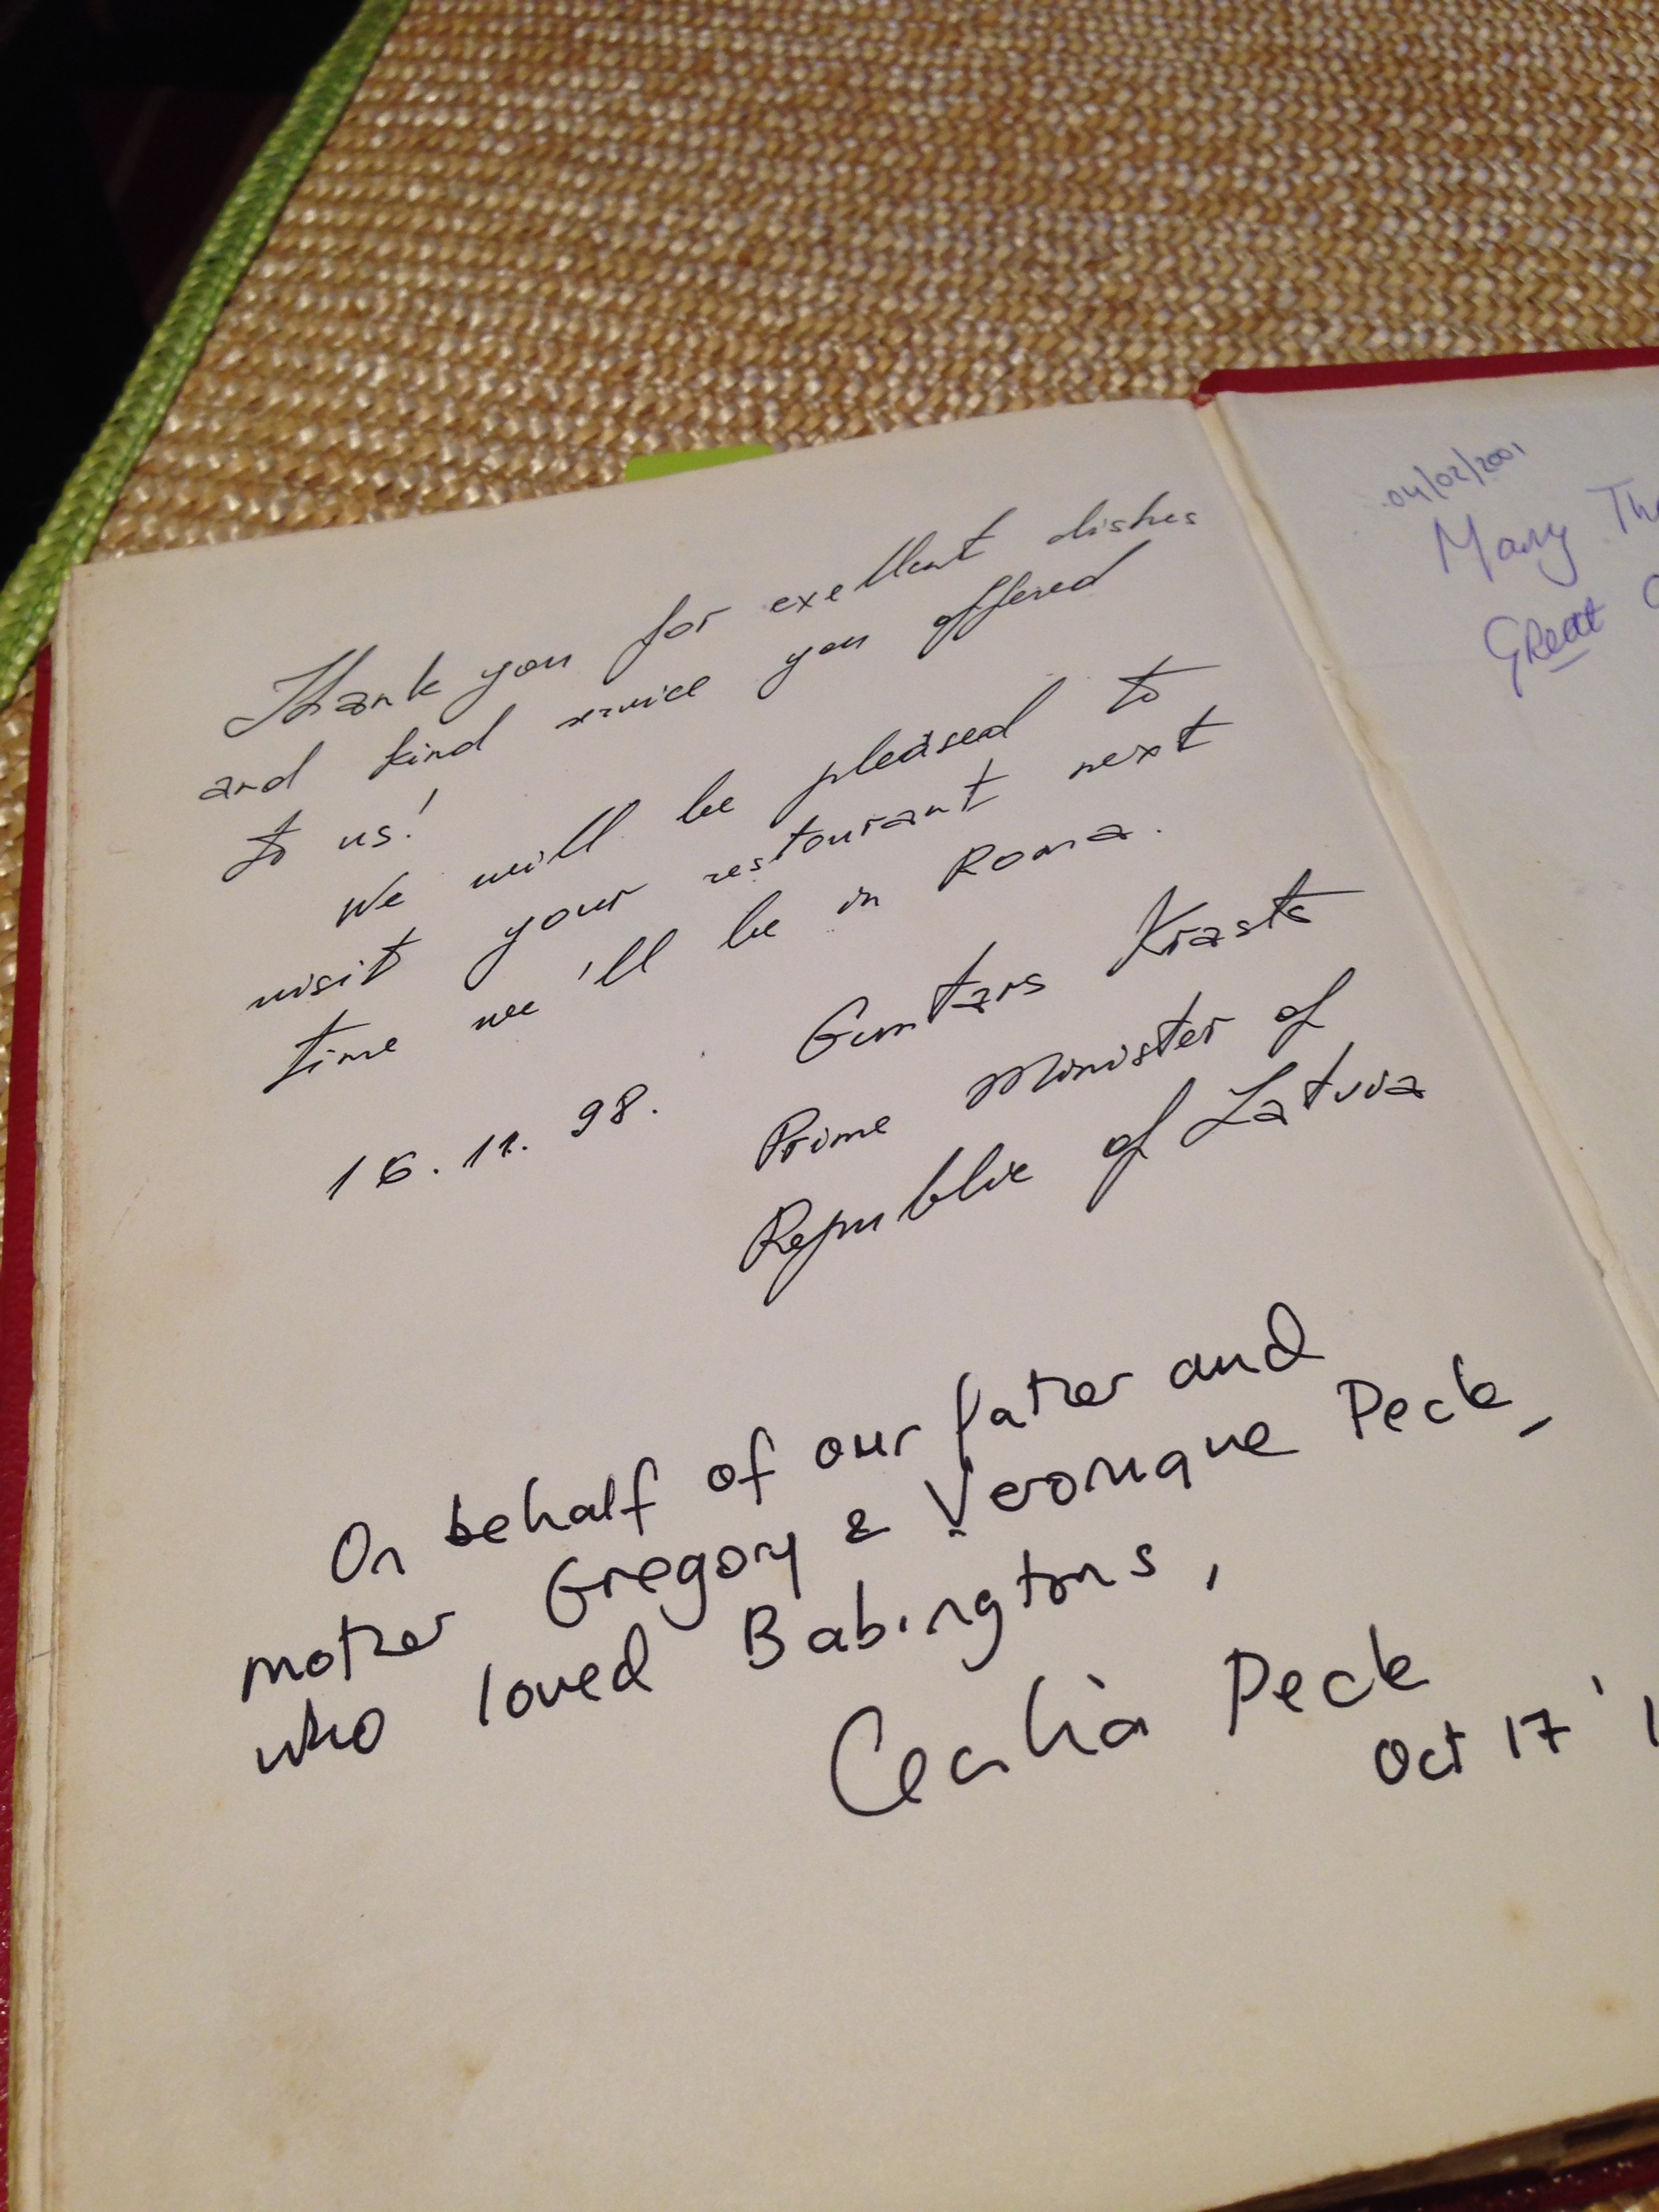 Thank you for exellent dishes
and kind service you offered
to us!
We will be pleased to
visit your restourant next
time we'll be in Roma.
Guntars Krasts
16.11.98.
Prime Minister of
Republic of Latvia
On behalf of our father and
mother Gregory & Veronique Peck,
who loved Babingtons,
Cecilia Peck
Oct 17 '1
04/02/2001
Many
Great